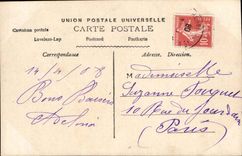 UNION POSTALE UNIVERSELLE
CARTE POSTALE
Cartolina postale Postcard Dopisnice
Levelezo-Lap Postkarte
Correspondance Adresse, Direction.
14/4/08
Bons Baisers
Mademoiselle
Suzanne Fouquet
10 Rue du Jourdain
(Paris)